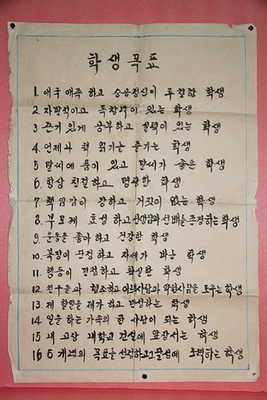 학생목표
1. 애국 애족 하고 승공정신이 투철한 학생
2. 자발적이고 독창력이 있는 학생
3. 끈기 있게 공부하고 실력이 있는 학생
4. 언제나 책 읽기를 즐기는 학생
5. 말씨에 품이 있고 글씨가 좋은 학생
6. 항상 친절하고 명랑한 학생
7. 책임감이 강하고 거짓이 없는 학생
8. 부모께 효성하고 선생님과 선배를 존경하는 학생
9. 운동을 좋아하고 건강한 학생
10. 복장이 단정하고 자세가 바른 학생
11. 행동이 민첩하고 확실한 학생
12. 친구들과 협조하고 어려운 사람을 도우는 학생
13. 제 할일을 제가 하고 반성하는 학생
14. 일을 하는 가족의 한 사람이 되는 학생
15. 내 고장 내학교 건설에 앞장서는 학생
16. 5개년의 목표를 노력하는 학생